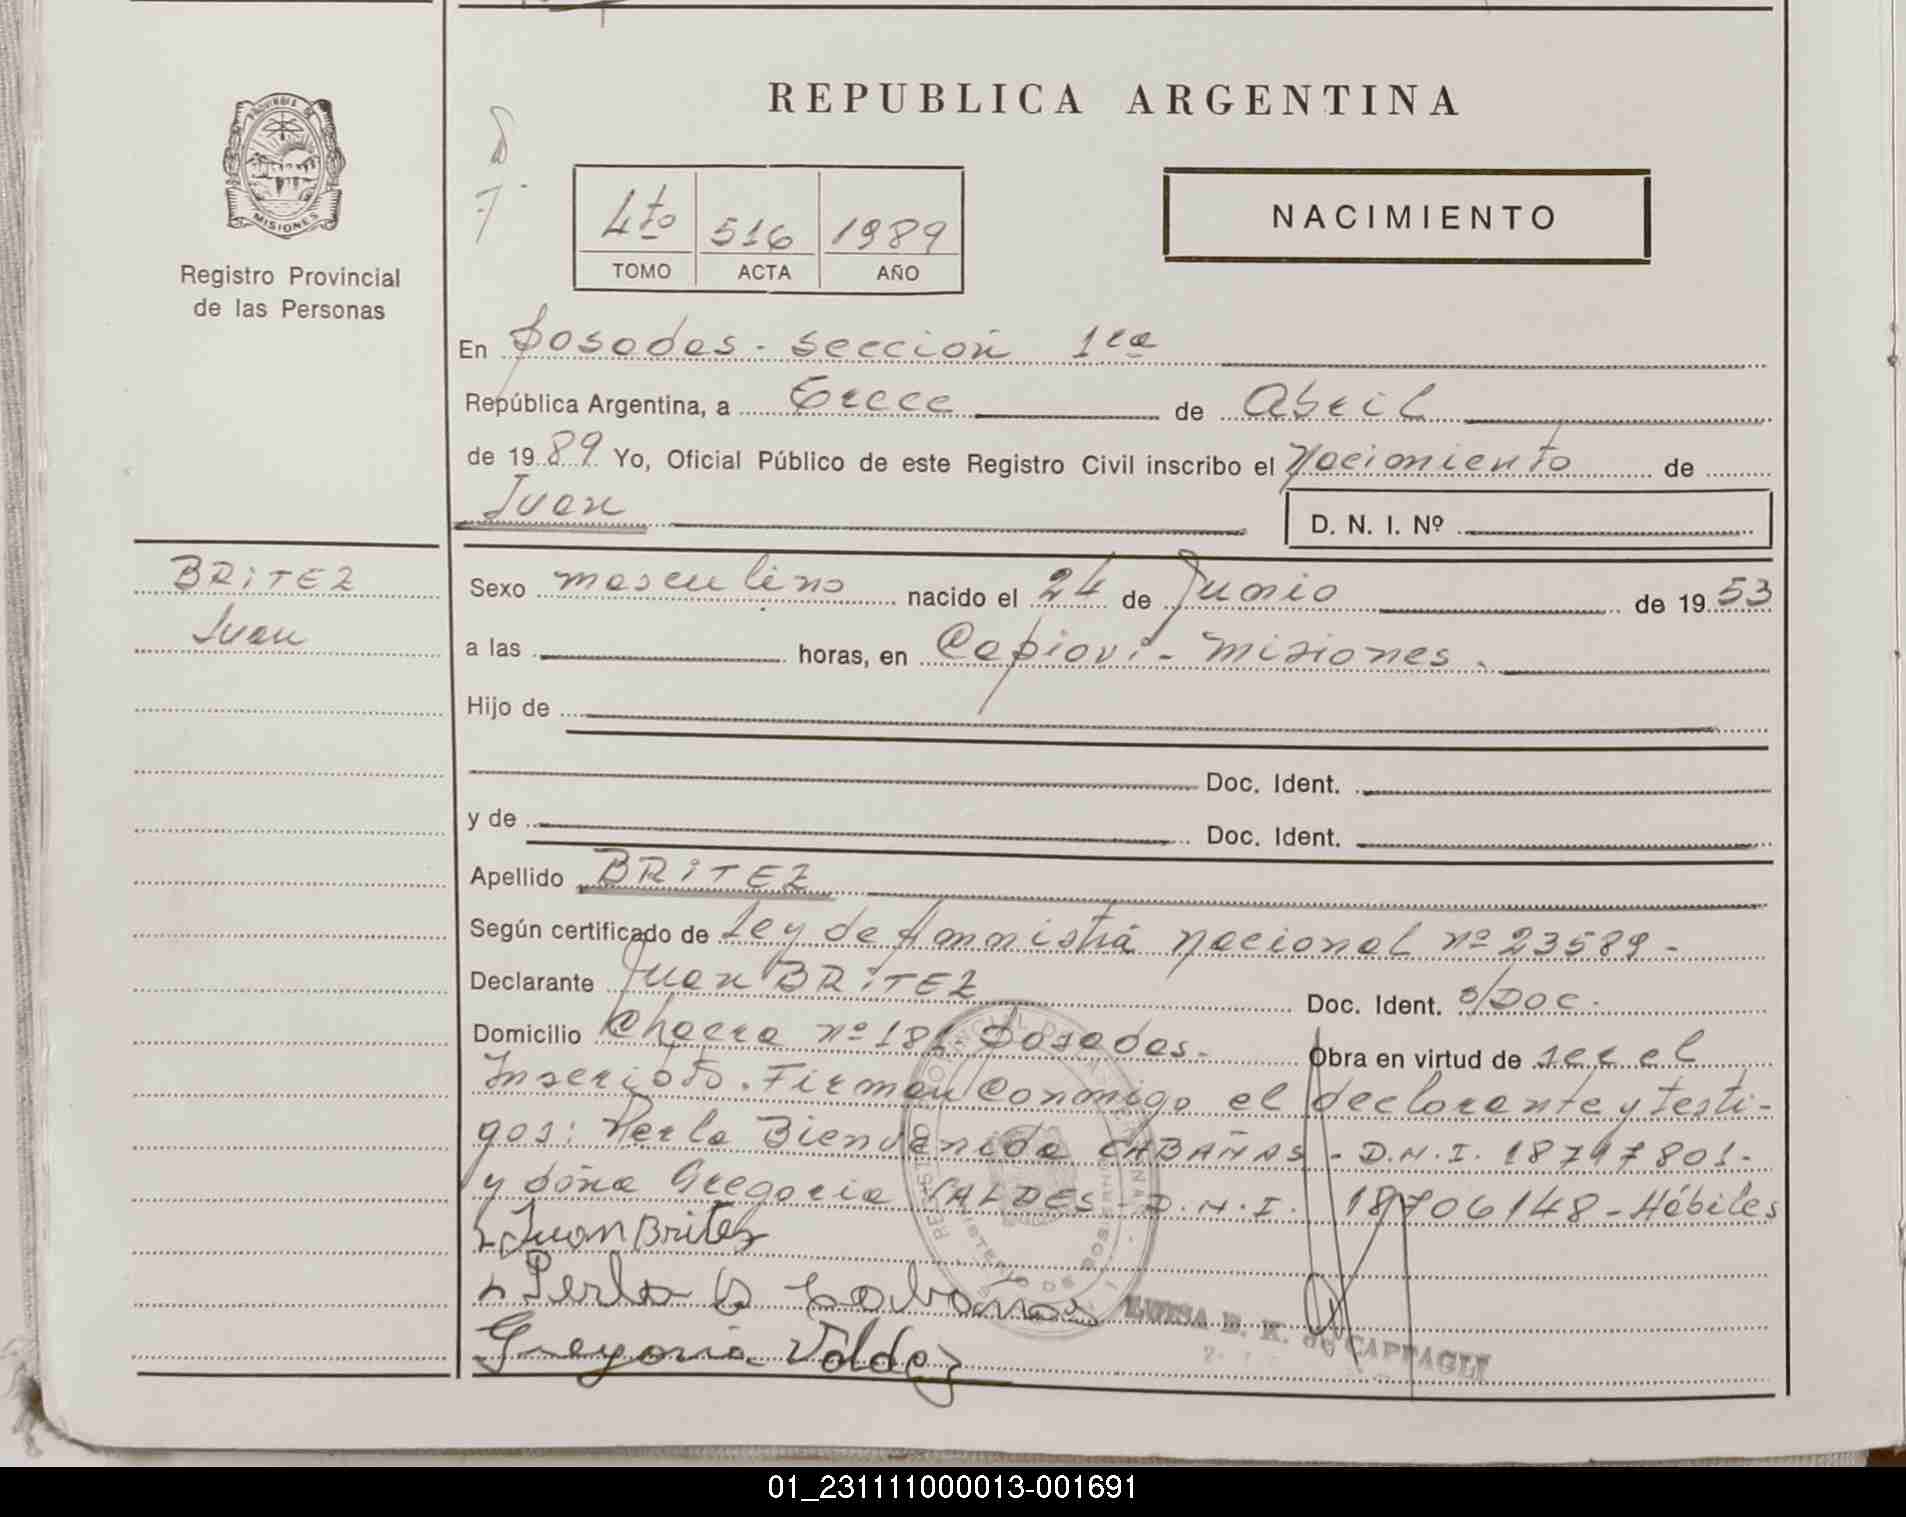 REPUBLICA ARGENTINA
PROVINCIA DE
MISIONES
Registro Provincial
de las Personas
4to 516 1989
TOMO ACTA AÑO
NACIMIENTO
En Posadas - sección 1ra
República Argentina, a trece de Abril
de 1989 Yo, Oficial Público de este Registro Civil inscribo el Nacimiento de
Juan
D. N. I. Nº
BRiTEZ
Juan
Sexo masculino nacido el 24 de Junio de 1953
a las horas, en Capiovi - Misiones.
Hijo de
Doc. Ident.
y de Doc. Ident.
Apellido BRiTEZ
Según certificado de Ley de Amnistía Nacional nº 23589-
Declarante Juan BRiTEZ Doc. Ident. s/DOC.
Domicilio Chacra nº 181 Posadas. Obra en virtud de ser el
Inscripto. Firman Conmigo el declarante y testi-
gos: Perla Bienvenida CABAÑAS - D.N.I. 18797801-
y doña Gregoria VALDES - D.N.I. 18706148 - Hábiles
Juan Britez
Perla B Cabañas
Gregoria Valdez
LUISA E. K. de CAPPAGLI
01_231111000013-001691